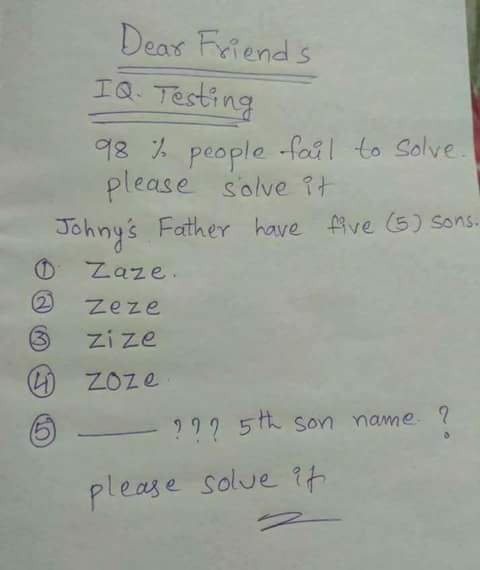 Dear Friends
IQ. Testing
98 % people fail to solve.
please solve it
Johny's Father have five (5) sons.
① Zaze.
② Zeze
③ Zize
④ Zoze.
⑤ ——— ??? 5th son name ?
please solve it